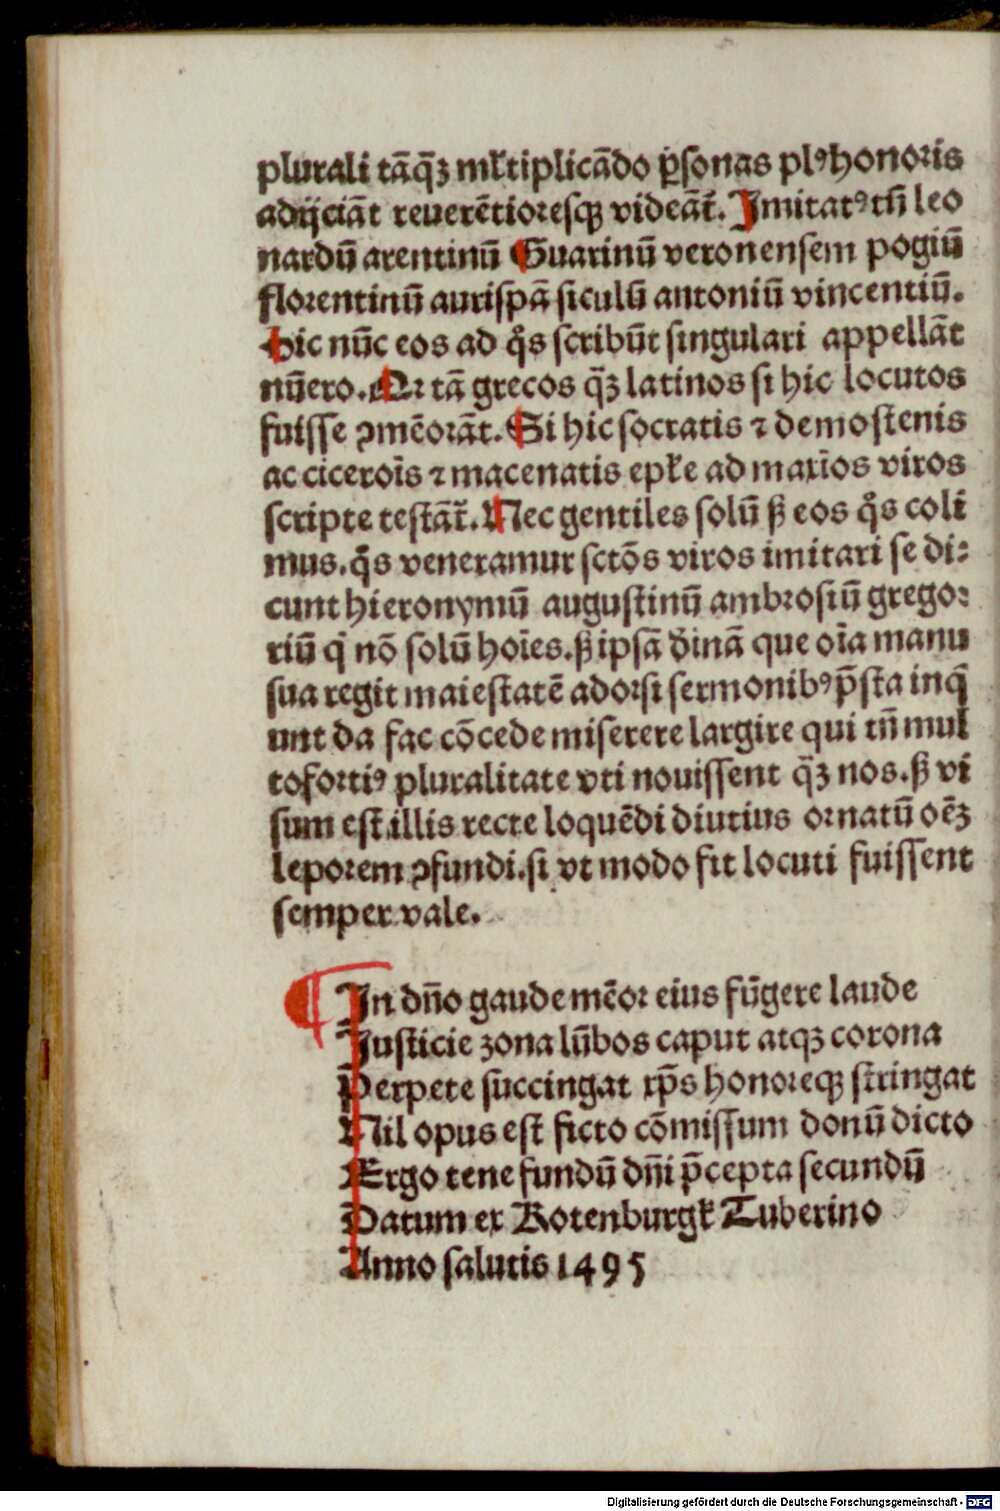 plurali tāq̄ꝫ mƚtiplicādo ꝑsonas plꝰ honoꝛis
adijciāt reuerētioꝛesqꝫ videāt̄. Imitatꝰ tn̄ leo
nardū arentinū Guarinū veronensem pogiū
floꝛentinū aurispā siculū antoniū vincentiū.
Hic nūc eos ad q̊s scribūt singulari appellāt
nūero. Qꝛ tā grecos q̄ꝫ latinos si hic locutos
fuisse ꝯmēoꝛāt. Si hic socratis ⁊ demostenis
ac ciceroīs ⁊ macenatis epƚe ad maxīos viros
scripte testāt̄. Nec gentiles solū ꝭß eos q̊s coli
mus. q̊s veneramur sctōs viros imitari se di⸗
cunt hieronymū augustinū ambꝛosiū grego⸗
riū q̄ nō solū hoīes. ß ipsā diuīnā que oīa manu
sua regit maiestatē adoꝛsi sermonibꝰ p̄sta inq̄
unt da fac cōcede miserere largire qui tn̄ mul
tofoꝛtiꝰ pluralitate vti nouissent q̄ꝫ nos. ß vi
sum est illis recte loquēdi diutius oꝛnatū oēꝫ
lepoꝛem ꝯfundi. si vt modo fit locuti fuissent
semper vale.
¶ In dn̄o gaude mēoꝛ eius fūgere laude
Justicie zona lūbos caput atqꝫ coꝛona
Perpete succingat xp̄s honoꝛeqꝫ stringat
Nil opus est ficto cōmissum donū dicto
Ergo tene fundū dn̄i p̄cepta secundū
Datum ex Rotenburgk Tuberino
Anno salutis 1495
Digitalisierung gefördert durch die Deutsche Forschungsgemeinschaft - DFG